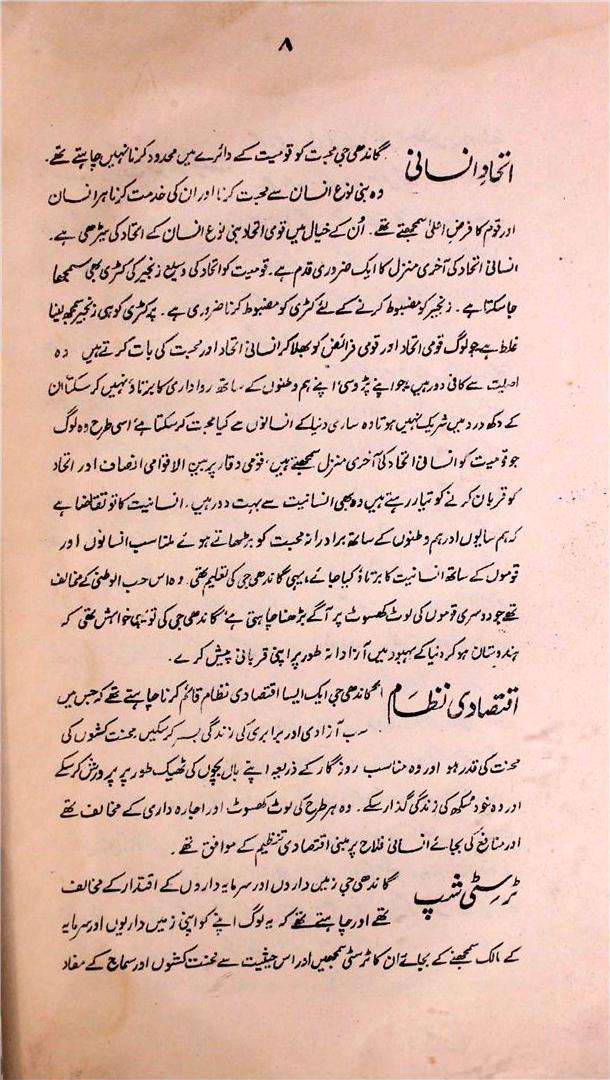 ۸
اتحادِ انسانی گاندھی جی محبت کو قومیت کے دائرے میں محدود کرنا نہیں چاہتے تھے۔
وہ بنی نوع انسان سے محبت کرنا اور ان کی خدمت کرنا ہر انسان
اور قوم کا فرضِ اعلیٰ سمجھتے تھے۔ اُن کے خیال میں قومی اتحاد بنی نوع انسان کے اتحاد کی سیڑھی ہے۔
انسانی اتحاد کی آخری منزل کا ایک ضروری قدم ہے۔ قومیت کو اتحاد کی وسیع زنجیر کی کڑی بھی سمجھا
جا سکتا ہے۔ زنجیر کو مضبوط کرنے کے لئے کڑی کو مضبوط کرنا ضروری ہے۔ پر کڑی کو ہی زنجیر سمجھ لینا
غلط ہے جو لوگ قومی اتحاد اور قومی فرائض کو بھلا کر انسانی اتحاد اور محبت کی بات کرتے ہیں وہ
اصلیت سے کافی دور ہیں جو اپنے پڑوسی اپنے ہم وطنوں کے ساتھ رواداری کا برتاؤ نہیں کر سکتا ان
کے دکھ درد میں شریک نہیں ہوتا وہ ساری دنیا کے انسانوں سے کیا محبت کر سکتا ہے اسی طرح وہ لوگ
جو قومیت کو انسانی اتحاد کی آخری منزل سمجھتے ہیں، قومی وقار پر بین الاقوامی انصاف اور اتحاد
کو قربان کرنے کو تیار رہتے ہیں وہ بھی انسانیت سے بہت دور ہیں۔ انسانیت کا تو تقاضا ہے
کہ ہم سایوں اور ہم وطنوں کے ساتھ برادرانہ محبت کو بڑھاتے ہوئے مناسب انسانوں اور
قوموں کے ساتھ انسانیت کا برتاؤ کیا جائے، یہی گاندھی جی کی تعلیم تھی۔ وہ اس حب الوطنی کے مخالف
تھے جو دوسری قوموں کی لوٹ کھسوٹ پر آگے بڑھنا چاہتی ہے گاندھی جی کی تو یہی خواہش تھی کہ
ہندوستان ہو کر دنیا کے بہبود میں آزادانہ طور پر اپنی قربانی پیش کرے۔
اقتصادی نظام گاندھی جی ایک ایسا اقتصادی نظام قائم کرنا چاہتے تھے کہ جس میں
سب آزادی اور برابری کی زندگی بسر کر سکیں محنت کشوں کی
محنت کی قدر ہو اور وہ مناسب روزگار کے ذریعہ اپنے بال بچوں کی ٹھیک طور پر پرورش کر سکے
اور وہ خود سکھ کی زندگی گذار سکے۔ وہ ہر طرح کی لوٹ کھسوٹ اور اجارہ داری کے مخالف تھے
اور منافع کی بجائے انسانی فلاح پر مبنی اقتصادی تنظیم کے موافق تھے۔
ٹرسٹی شپ گاندھی جی زمین داروں اور سرمایہ داروں کے اقتدار کے مخالف
تھے اور چاہتے تھے کہ یہ لوگ اپنے کو اپنی زمین داریوں اور سرمایہ
کے مالک سمجھنے کے بجائے ان کا ٹرسٹی سمجھیں اور اس حیثیت سے محنت کشوں اور سماج کے مفاد